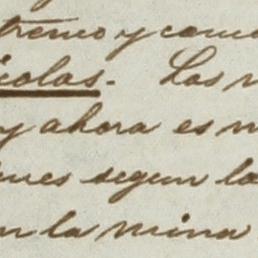 tremo y como
icolas. Las
y ahora es
nes segun la
n la mina